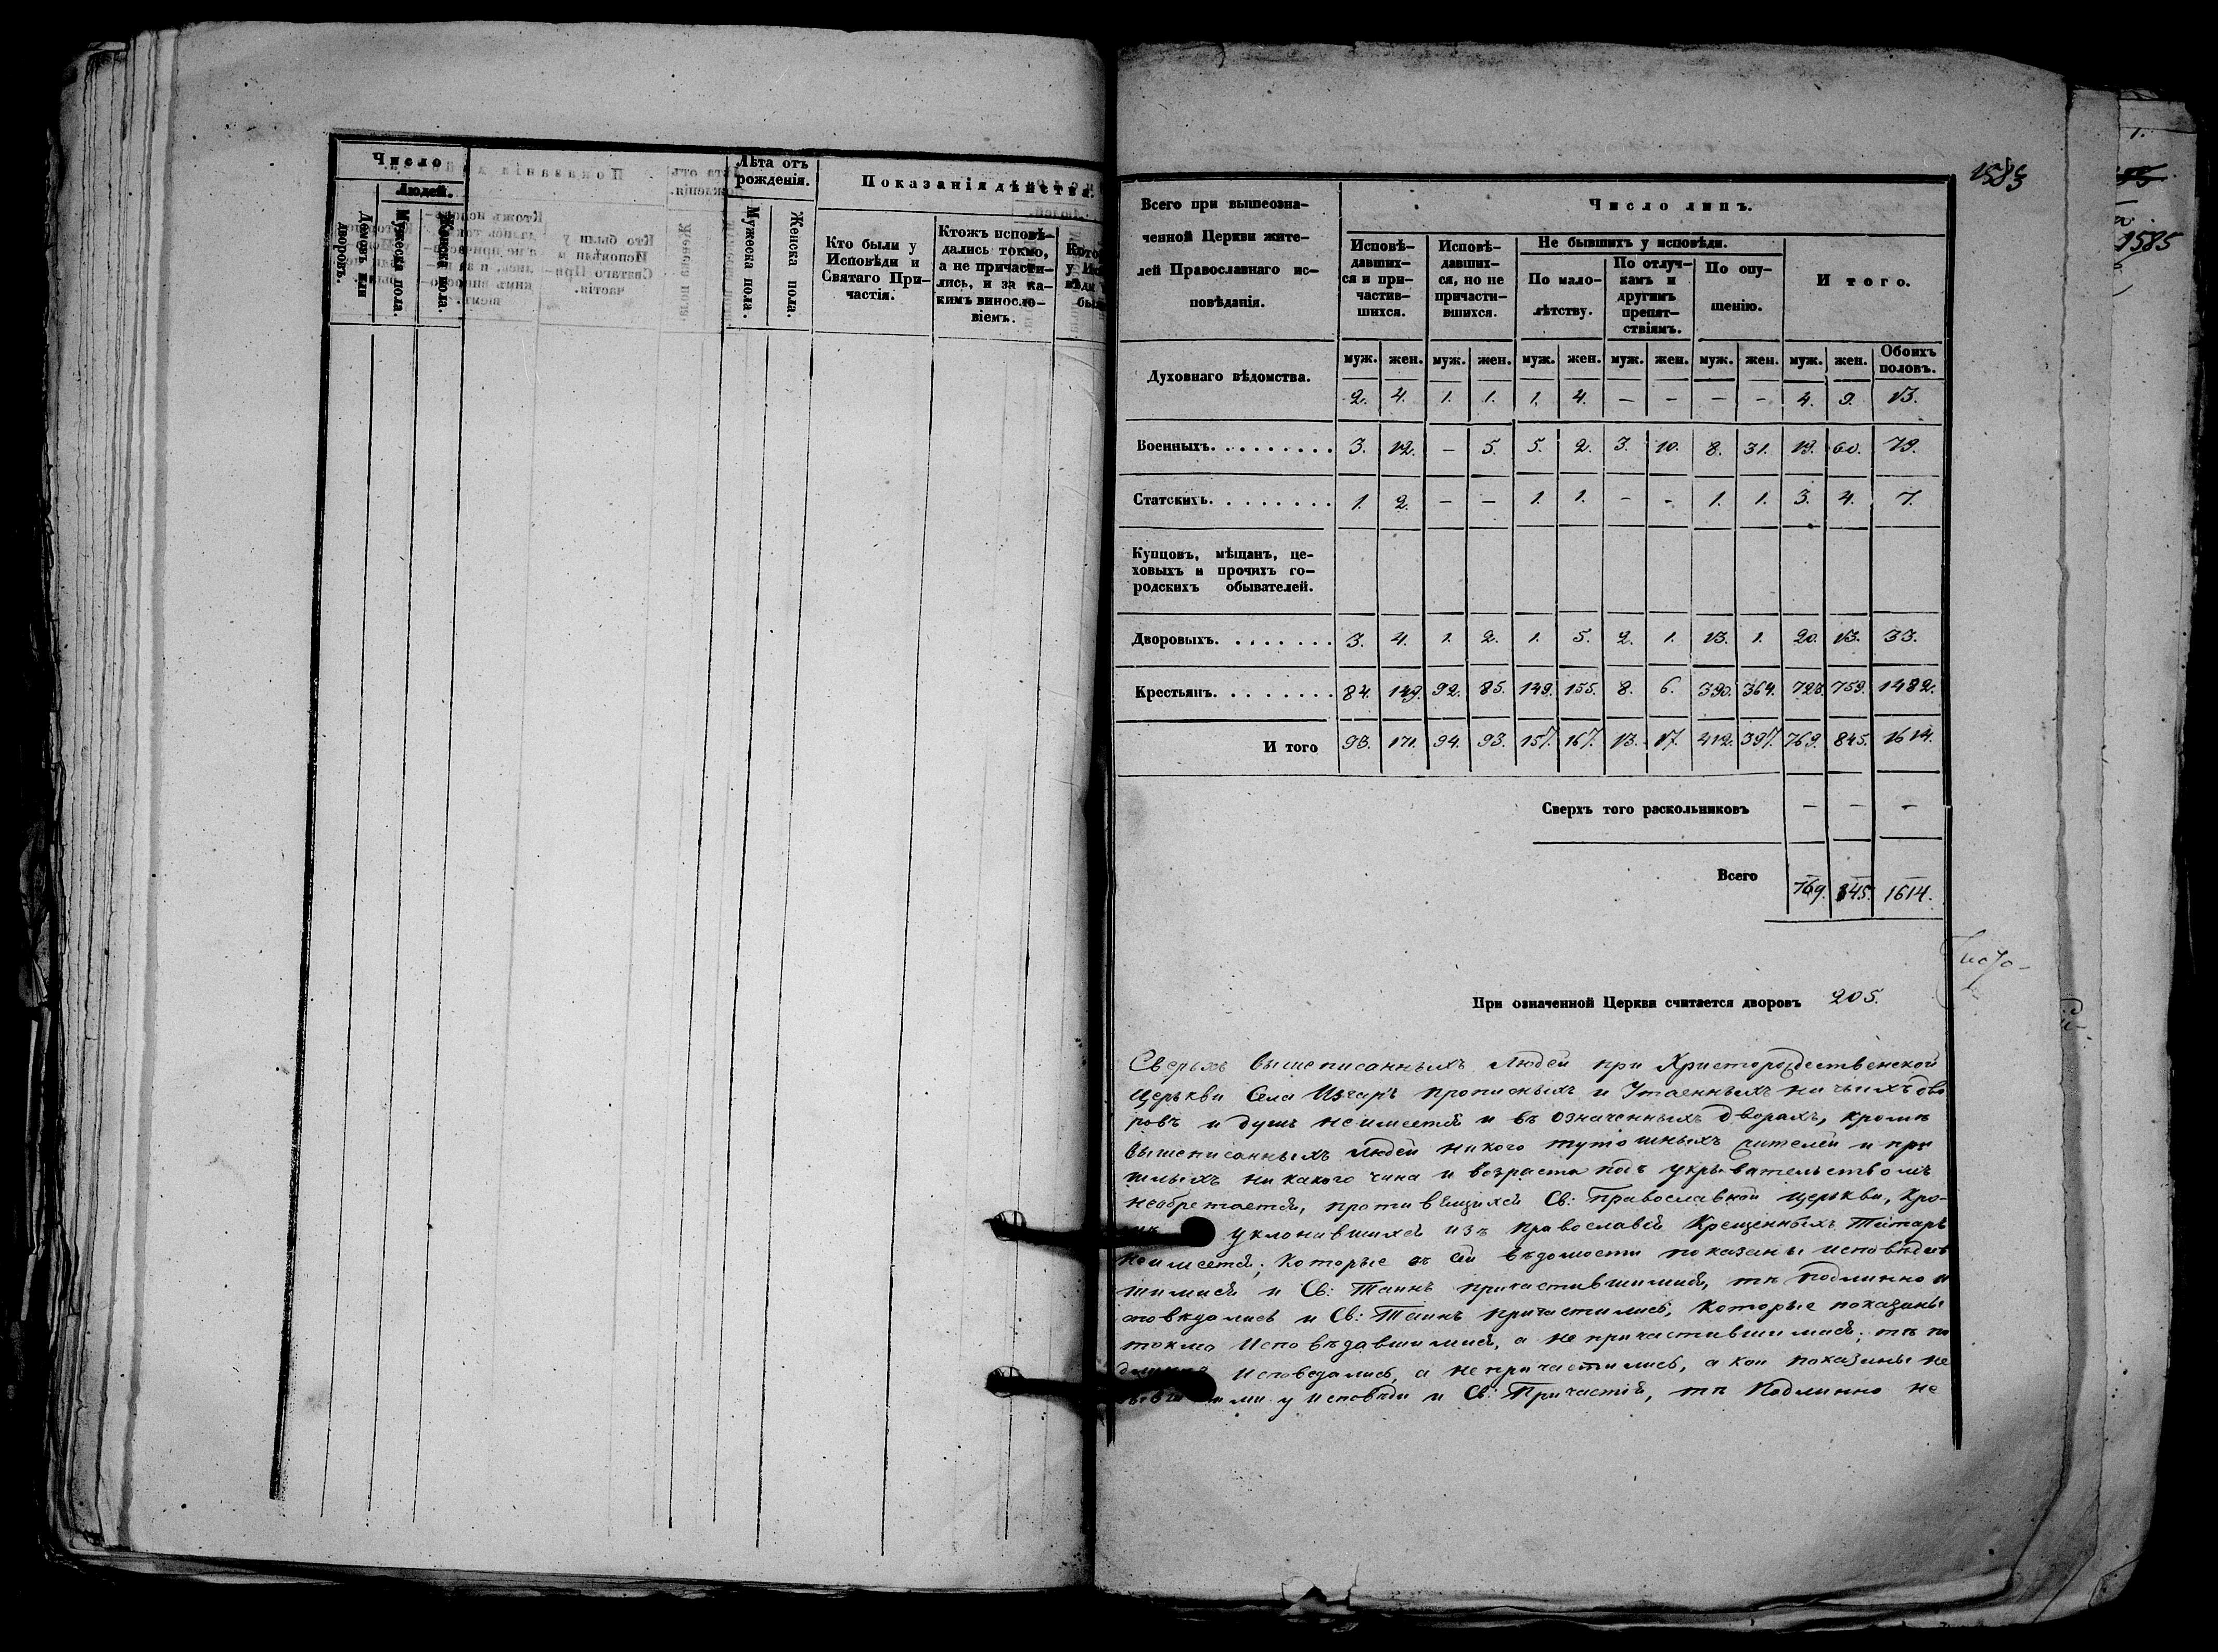 Число
Людей.
Домовъ или дворовъ.
Мужеска пола.
Женска пола.
Лѣта отъ рожденія.
Мужеска пола.
Женска пола.
Показанія дѣйствія.
Кто были у
Исповѣди и
Святаго При-
частія.
Ктожъ исповѣ-
дались токмо,
а не причасти-
лись, и за ка-
кимъ виносло-
віемъ.
1583
1585
Всего при вышеозна-
ченной Церкви жите-
лей Православнаго ис-
повѣданія.
Число лицъ.
Исповѣ-
давших-
ся и при-
частив-
шихся.
Исповѣ-
давших-
ся, но не
причасти-
вшихся.
Не бывшихъ у исповѣди.
По мало-
лѣтству.
По отлуч-
камъ и
другимъ
препят-
ствіямъ.
По опу-
щенію.
И того.
муж. жен. муж. жен. муж. жен. муж. жен. муж. жен. муж. жен. Обоихъ половъ.
Духовнаго вѣдомства. 2. 4. 1. 1. 1. 4. – – – – 4. 9. 13.
Военныхъ. 3. 12. – 5. 5. 2. 3. 10. 8. 31. 19. 60. 79.
Статскихъ. 1. 2. – – 1. 1. – – 1. 1. 3. 4. 7.
Купцовъ, мѣщанъ, це-
ховыхъ и прочихъ го-
родскихъ обывателей.
Дворовыхъ. 3. 4. 1. 2. 1. 5. 2. 1. 13. 1. 20. 13. 33.
Крестьянъ. 84. 149. 92. 85. 149. 155. 8. 6. 390. 364. 723. 759. 1482.
И того 93. 171. 94. 93. 157. 167. 13. 17. 412. 397. 769. 845. 1614.
Сверхъ того раскольниковъ – – –
Всего 769. 845. 1614.
При означенной Церкви считается дворовъ 205.
Сверхъ вышеписанныхъ людей при Христорождественской
церькви Села прописныхъ и Утаенныхъ ни чьихъ дво
ровъ и душъ неимеетсй и въ означенныхъ дворахъ, кромѣ
вышеписанныхъ людей никого тутошныхъ жителей и при
шлыхъ ни какого чина и возраста подъ укрывательствомъ
необретаетсй, противъ Св: Православной церькви, Кро-
уклонившихсй изъ православій Крещенныхъ Татаръ
неимеетсй; Которые въ сей вѣдомости показаны исповѣдав
шимисй и Св: Таинъ причастившимисй, тѣ подлинно и
сповѣдались и Св: Таинъ причастились, Которые показаны
токмо Исповѣдавшимисй, а не причастившимисй; тѣ по
Исповедались, а не причастились, а кои показаны не
у исповѣди и Св: Причастій, тѣ Подлинно не